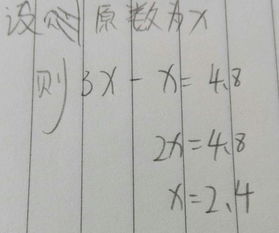 设原数为x
则 3x - x = 4.8
2x = 4.8
x = 2.4